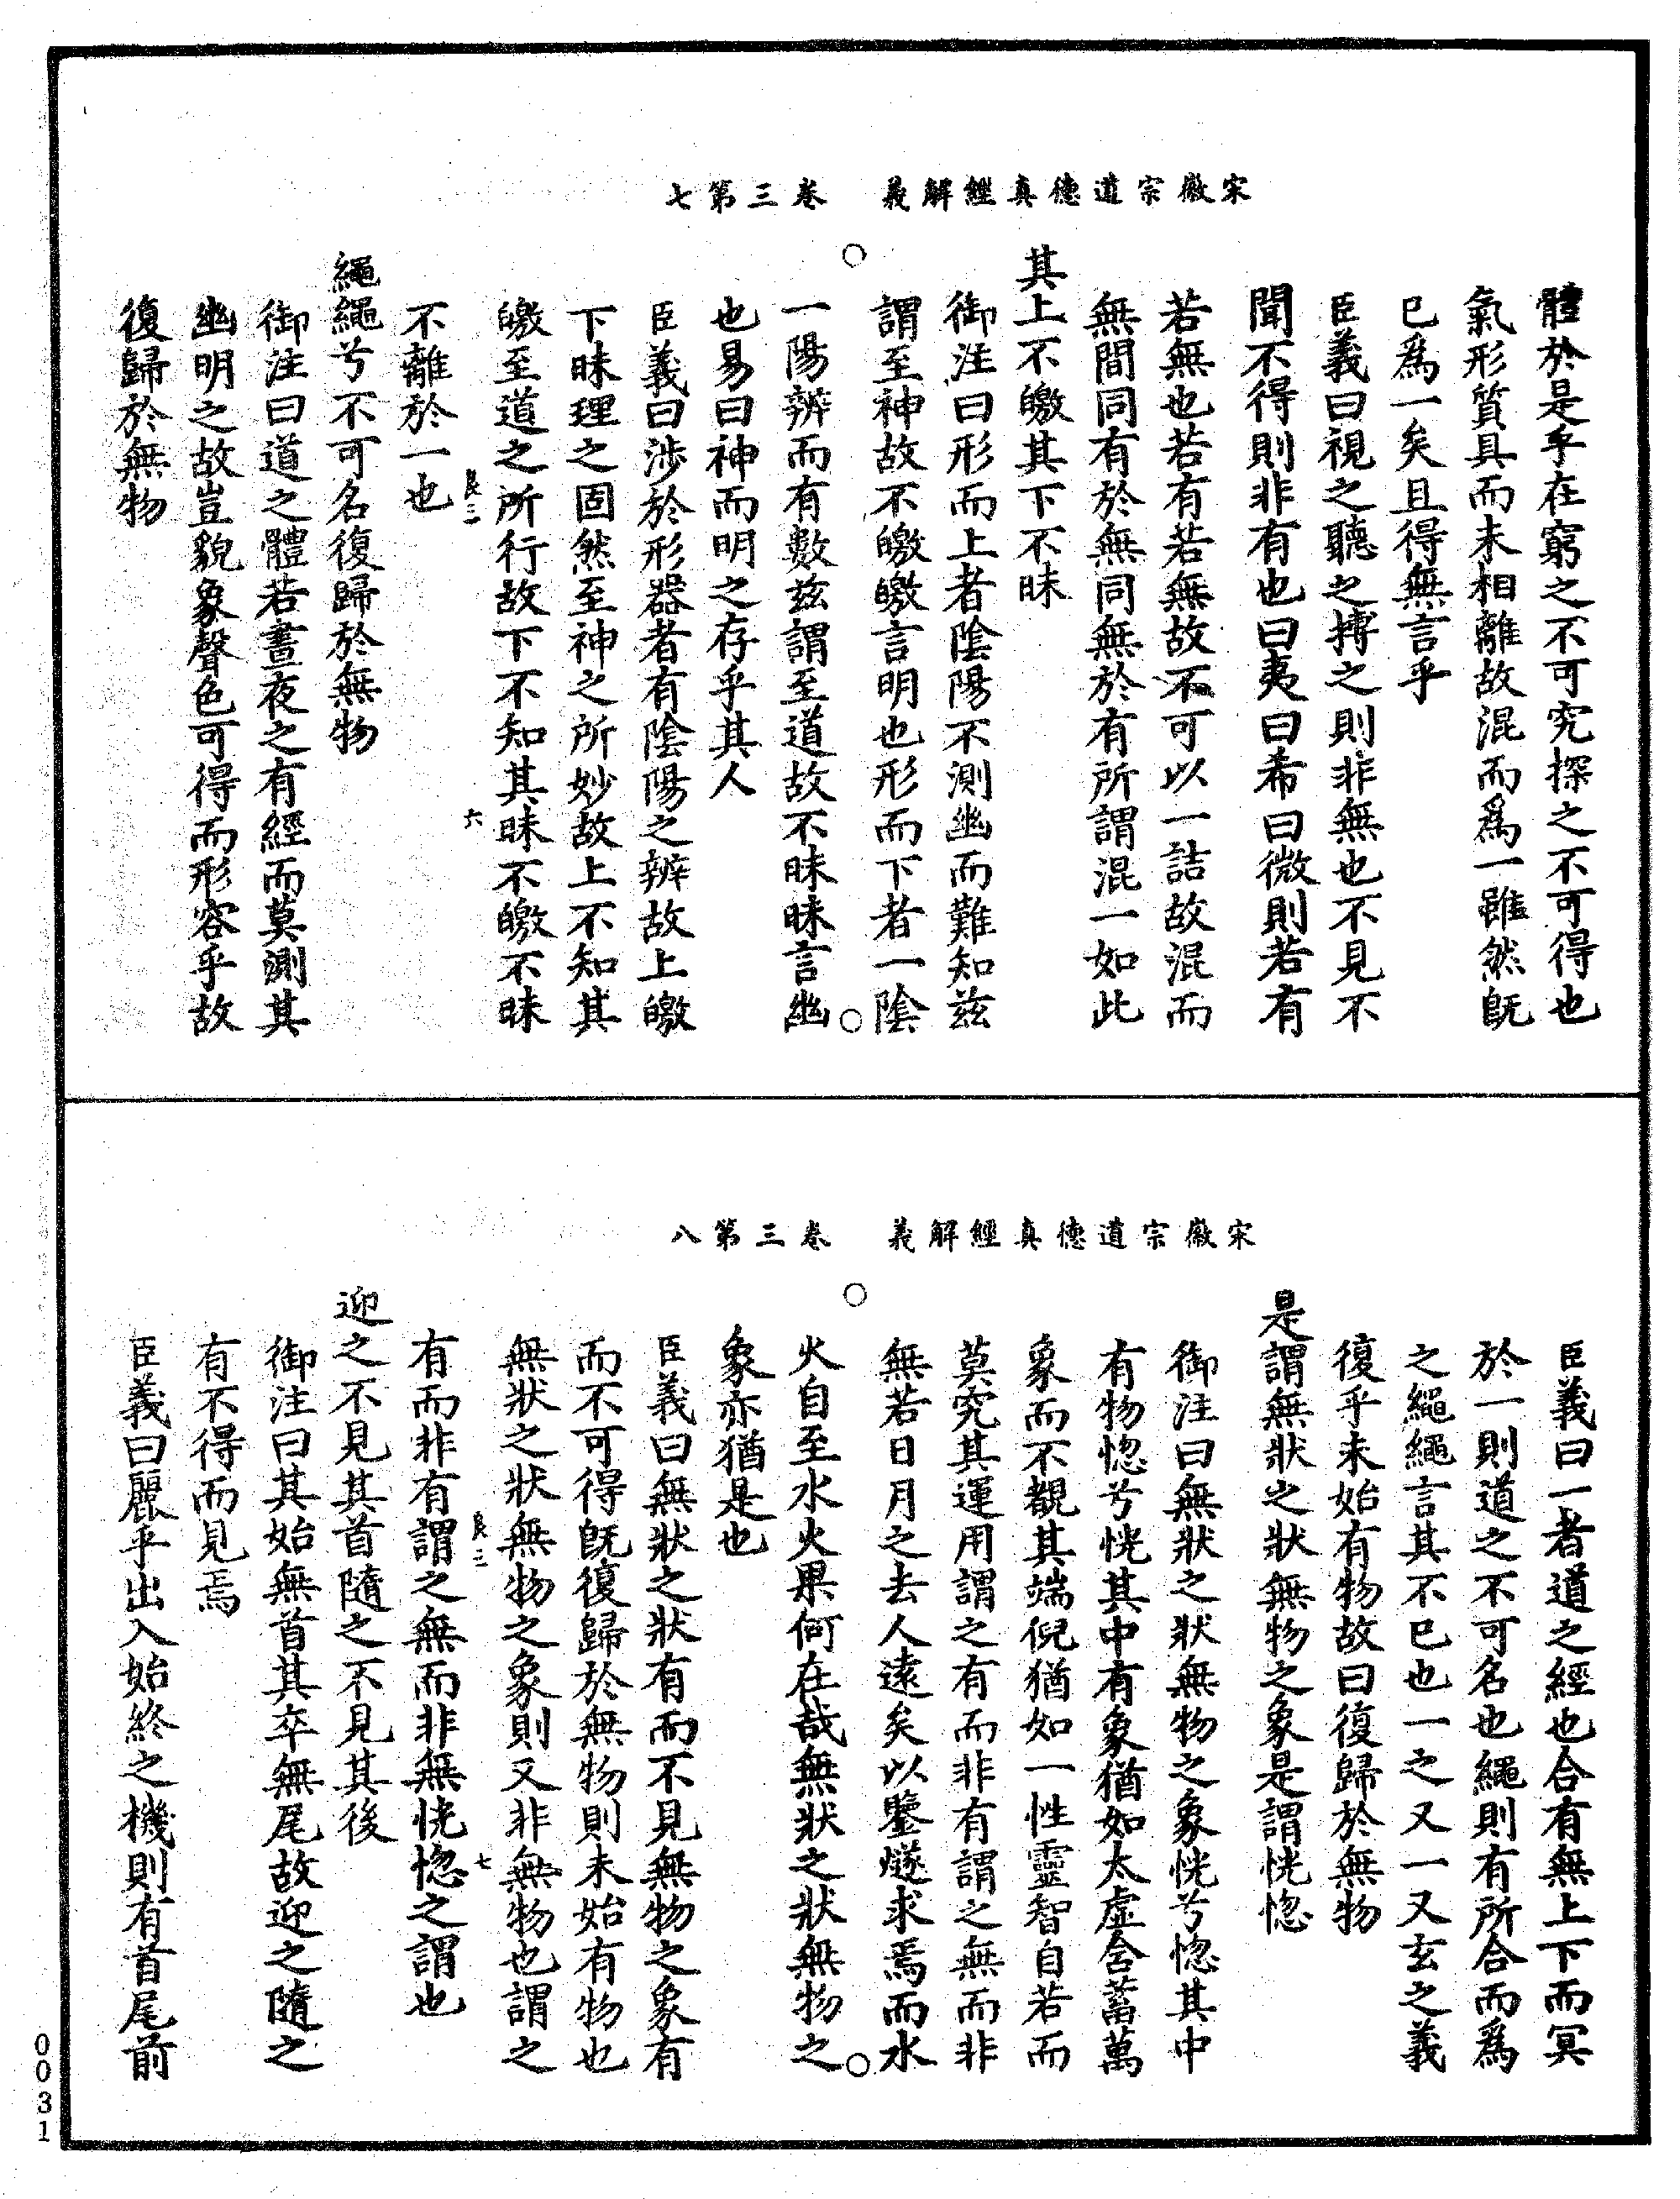 宋徽宗道德真經解義　卷三第七
體於是乎在窮之不可究探之不可得也
氣形質具而未相離故混而爲一雖然旣
已爲一矣且得無言乎
臣義曰視之聽之搏之則非無也不見不
聞不得則非有也曰夷曰希曰微則若有
若無也若有若無故不可以一詰故混而
無間同有於無同無於有所謂混一如此
其上不皦其下不昧
御注曰形而上者陰陽不測幽而難知茲
謂至神故不皦皦言明也形而下者一陰
一陽辨而有數茲謂至道故不昧昧言幽
也易曰神而明之存乎其人
臣義曰涉於形器者有陰陽之辨故上皦
下昧理之固然至神之所妙故上不知其
皦至道之所行故下不知其昧不皦不昧
良三　六
不離於一也
繩繩兮不可名復歸於無物
御注曰道之體若晝夜之有經而莫測其
幽明之故豈貌象聲色可得而形容乎故
復歸於無物
宋徽宗道德真經解義　卷三第八
臣義曰一者道之經也合有無上下而冥
於一則道之不可名也繩則有所合而爲
之繩繩言其不已也一之又一又玄之義
復乎未始有物故曰復歸於無物
是謂無狀之狀無物之象是謂恍惚
御注曰無狀之狀無物之象恍兮惚其中
有物惚兮恍其中有象猶如太虛含蓄萬
象而不覩其端倪猶如一性靈智自若而
莫究其運用謂之有而非有謂之無而非
無若日月之去人遠矣以鑒燧求焉而水
火自至水火果何在哉無狀之狀無物之
象亦猶是也
臣義曰無狀之狀有而不見無物之象有
而不可得旣復歸於無物則未始有物也
無狀之狀無物之象則又非無物也謂之
良三　七
有而非有謂之無而非無恍惚之謂也
迎之不見其首隨之不見其後
御注曰其始無首其卒無尾故迎之隨之
有不得而見焉
臣義曰麗乎出入始終之機則有首尾前
0031